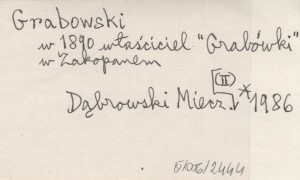 Grabowski
w 1890 właściciel "Grabówki"
w Zakopanem
[II]
Dąbrowski Miecz. * 1986